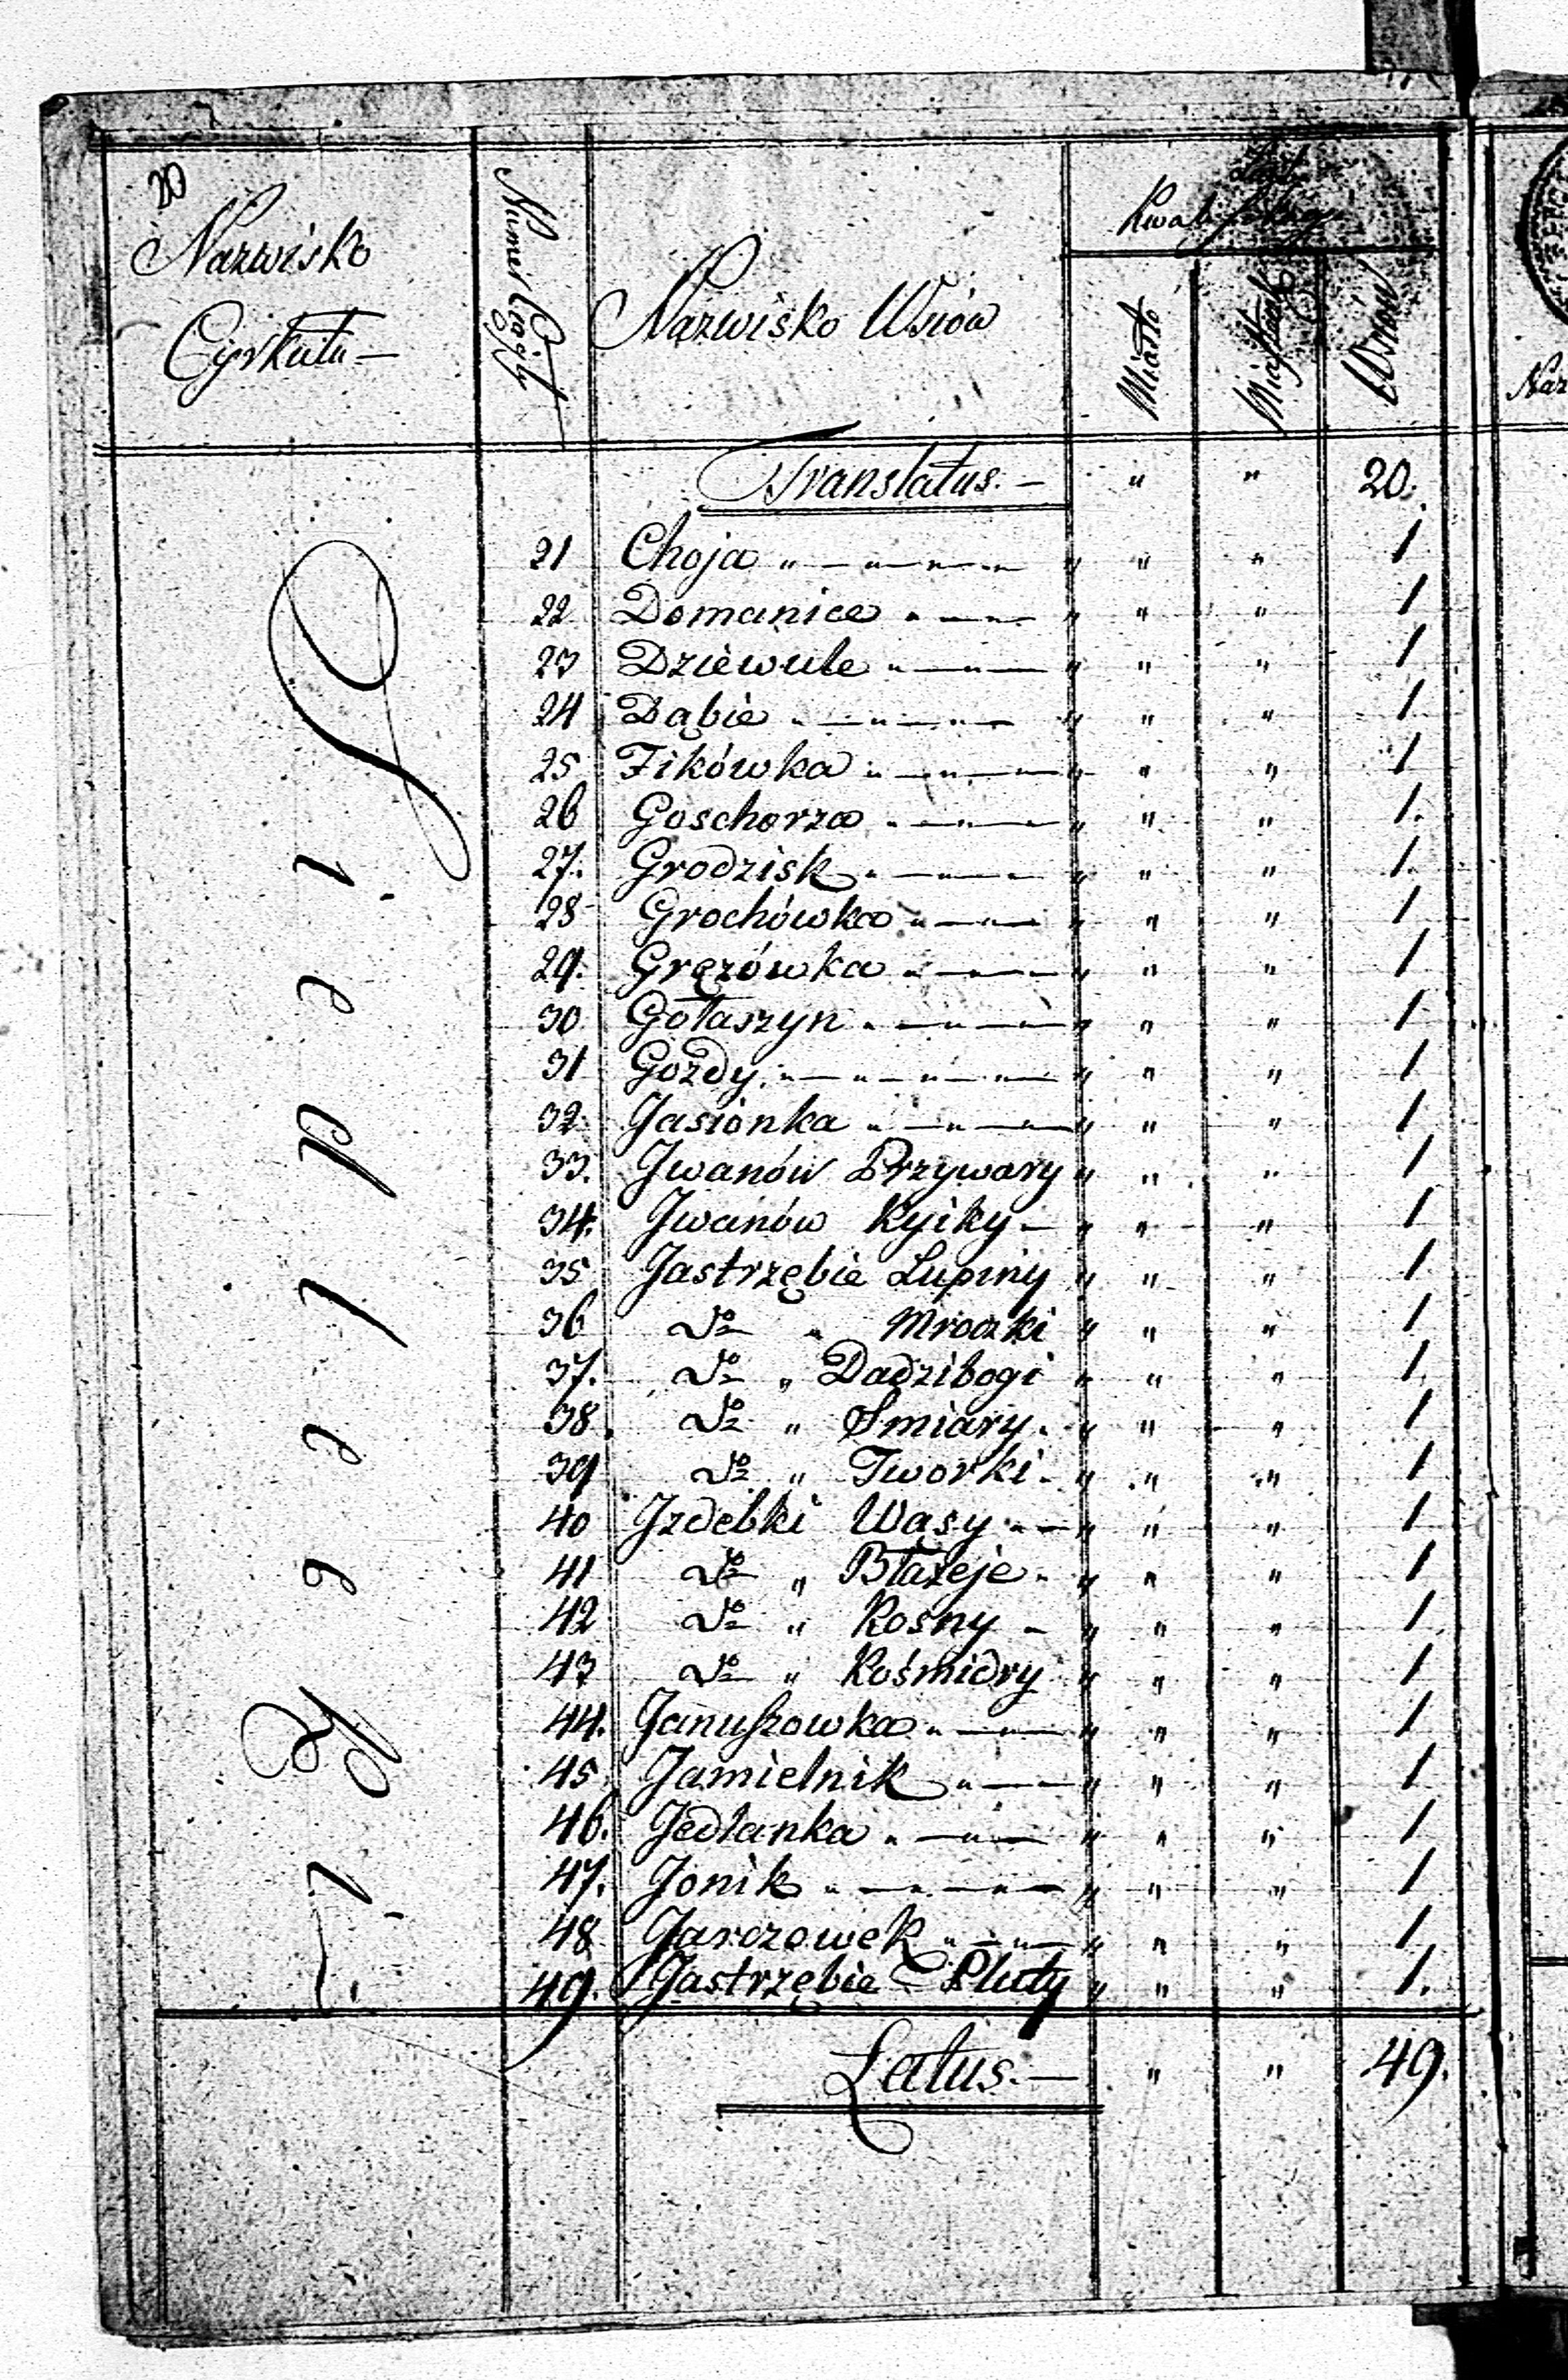 20
Nazwisko
Cyrkułu —
Numer Ciągły
Nazwisko Wsiów
Miasto
Miasteczk
Wsiów
Translatus. — " " 20.
21 Choja " " " 1
22 Domanice " " " 1
23 Dziewule " " " 1
24 Dąbie " " " 1
25 Fikówka " " " 1
26 Goschorza " " " 1.
27. Grodzisk " " " 1.
28 Grochówka " " " 1
29. Gręzówka " " " 1
30 Gołaszyn " " " 1
31 Gozdy " " " 1
32. Jasionka " " " 1
33. Jwanów Przywary " " " 1
34. Jwanów Kyiky — " " " 1
35 Jastrzębie Łupiny " " " 1
36 do " Mroczki " " " 1
37. do " Dadzibogi " " " 1.
38. do " Smiary. " " " 1
39 do " Tworki. " " " 1
40 Jzdebki Wąsy " " " 1
41 do " Błażeje. " " " 1
42 do " Kosny — " " " 1
43 do " Kośmidry " " " 1
44. Januszowka " " " 1
45 Jamielnik " " " 1
46. Jedlanka " " " 1
47. Jonik " " " 1
48 Jarczowek " " " 1
49. Jastrzębie Pluty " " " 1.
Latus. — " " 49.